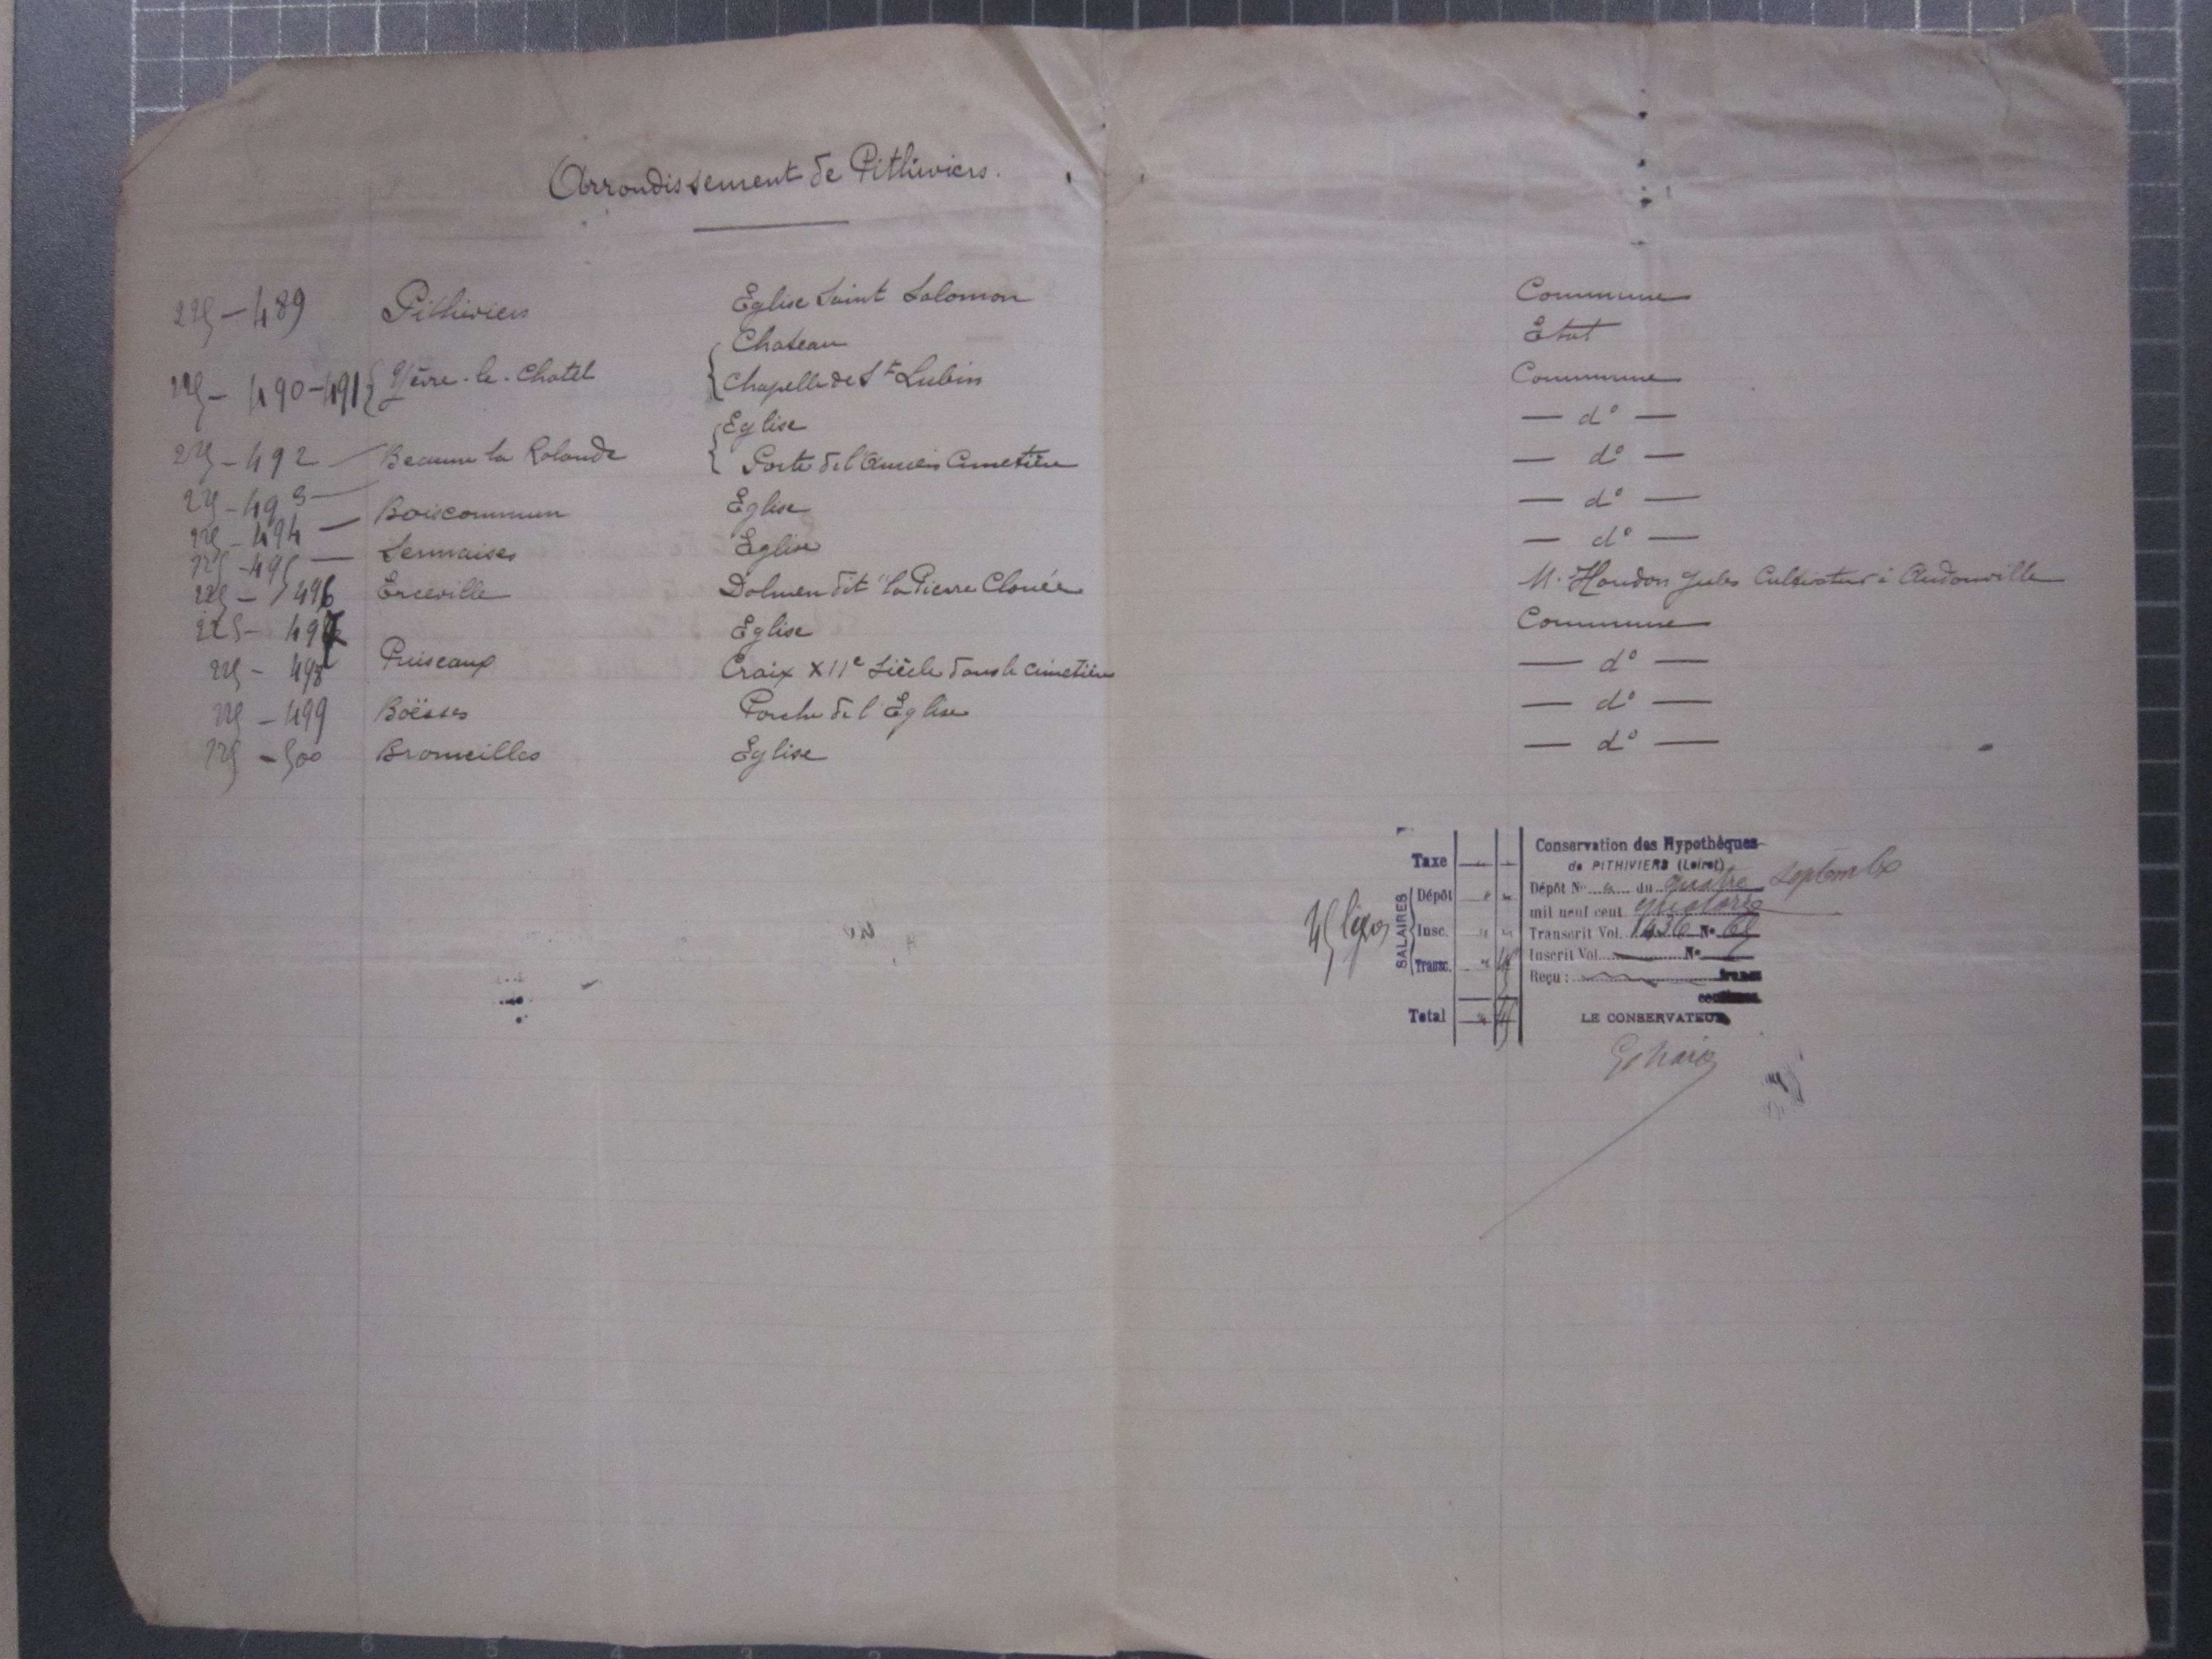 Arrondissement de Pithiviers.
225 - 489 Pithiviers Eglise Saint Salomon Commune
Chateau Etat
225 - 490 - 491 { Yèvre-le-Chatel { Chapelle de St Lubin Commune
Eglise — d° —
225 - 492 — Beaune la Rolande { Porte de l'Ancien Cimetière — d° —
225 - 493 —
225 - 494 — Boiscommun Eglise — d° —
225 - 495 — Sermaises Eglise — d° —
225 - 496 Erceville Dolmen dit "la Pierre Clouée M. Houdon Jules Cultivateur à Andonville
225 - 497 Eglise Commune
225 - 498 Puiseaux Croix XIIe Siècle dans le cimetière — d° —
225 - 499 Boësses Porche de l'Eglise — d° —
225 - 500 Bromeilles Eglise — d° —
Conservation des Hypothèques
de PITHIVIERS (Loiret)
Taxe
Dépôt No du quatre septembre
mil neuf cent quatorze
Transcrit Vol. 1436 No 65
Inscrit Vol. No
Reçu : francs
centimes
LE CONSERVATEUR
SALAIRES { Dépôt
Insc.
Transc.
Total
45 lignes